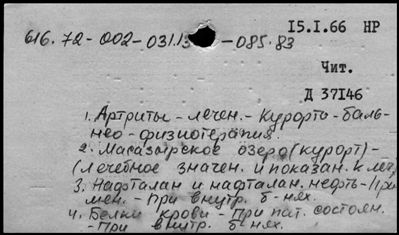 15.I.66 НР
616.72-002-031.13-085.83
Чит.
Д 37I46
1. Артриты - лечен. - Курорто-баль-
нео-физиотерапия.
2. Масазырское озеро (курорт) -
(лечебное значен. и показан. к леч.)
3. Нафталан и нафталан. нефть - При
мен. - При внутр. б-нях.
4. Белки крови - При пат. состоян.
- При внутр. б-нях.